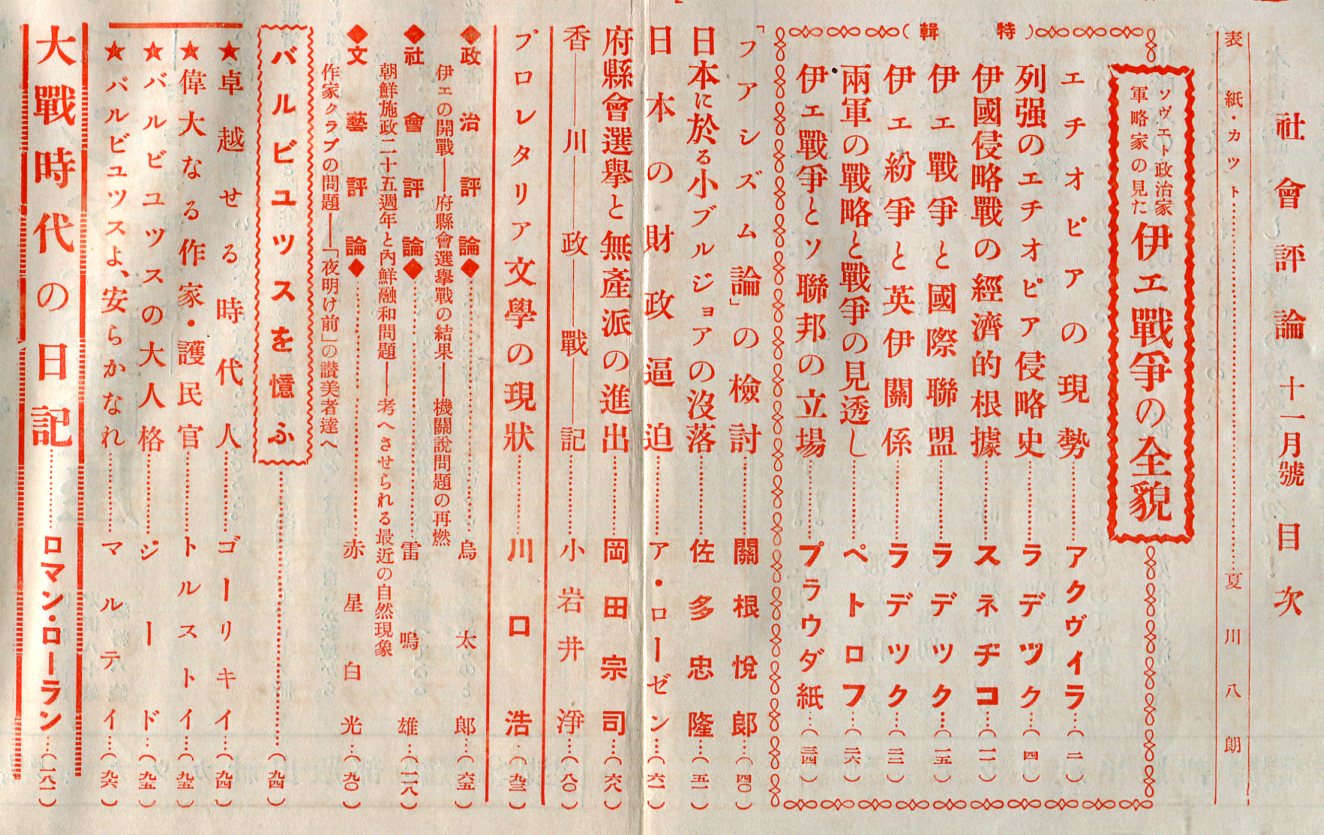 社會評論 十一月號 目次
表紙・カット……夏川八朗
(特輯)
ソヴエト政治家
軍略家の見た
伊エ戰爭の全貌
エチオピアの現勢……アクヴイラ…(二)
列强のエチオピア侵略史……ラデツク…(四)
伊國侵略戰の經濟的根據……スネヂコ…(一一)
伊エ戰爭と國際聯盟……ラデツク…(一五)
伊エ紛爭と英伊關係……ラデツク…(二二)
兩軍の戰略と戰爭の見透し……ペトロフ…(二六)
伊エ戰爭とソ聯邦の立場……プラウダ紙…(三四)
「フアシズム論」の檢討……關根悅郎…(四〇)
日本に於る小ブルジョアの沒落……佐多忠隆…(五一)
日本の財政逼迫……ア・ローゼン…(六一)
府縣會選擧と無產派の進出……岡田宗司…(六八)
香川政戰記……小岩井淨…(八〇)
プロレタリア文學の現狀……川口浩…(九三)
◆政治評論◆……烏太郎…(六五)
伊エの開戰――府縣會選擧戰の結果――機關說問題の再燃
◆社會評論◆……雷鳴雄…(一一八)
朝鮮施政二十五週年と內鮮融和問題――考へさせられる最近の自然現象
◆文藝評論◆……赤星白光…(九〇)
作家クラブの問題――「夜明け前」の讃美者達へ
バルビユツスを憶ふ……(九四)
★卓越せる時代人……ゴーリキイ…(九四)
★偉大なる作家・護民官……トルストイ…(九五)
★バルビユツスの大人格……ジード…(九五)
★バルビユツスよ、安らかなれ……マルテイ…(九六)
大戰時代の日記……ロマン・ローラン…(一八一)